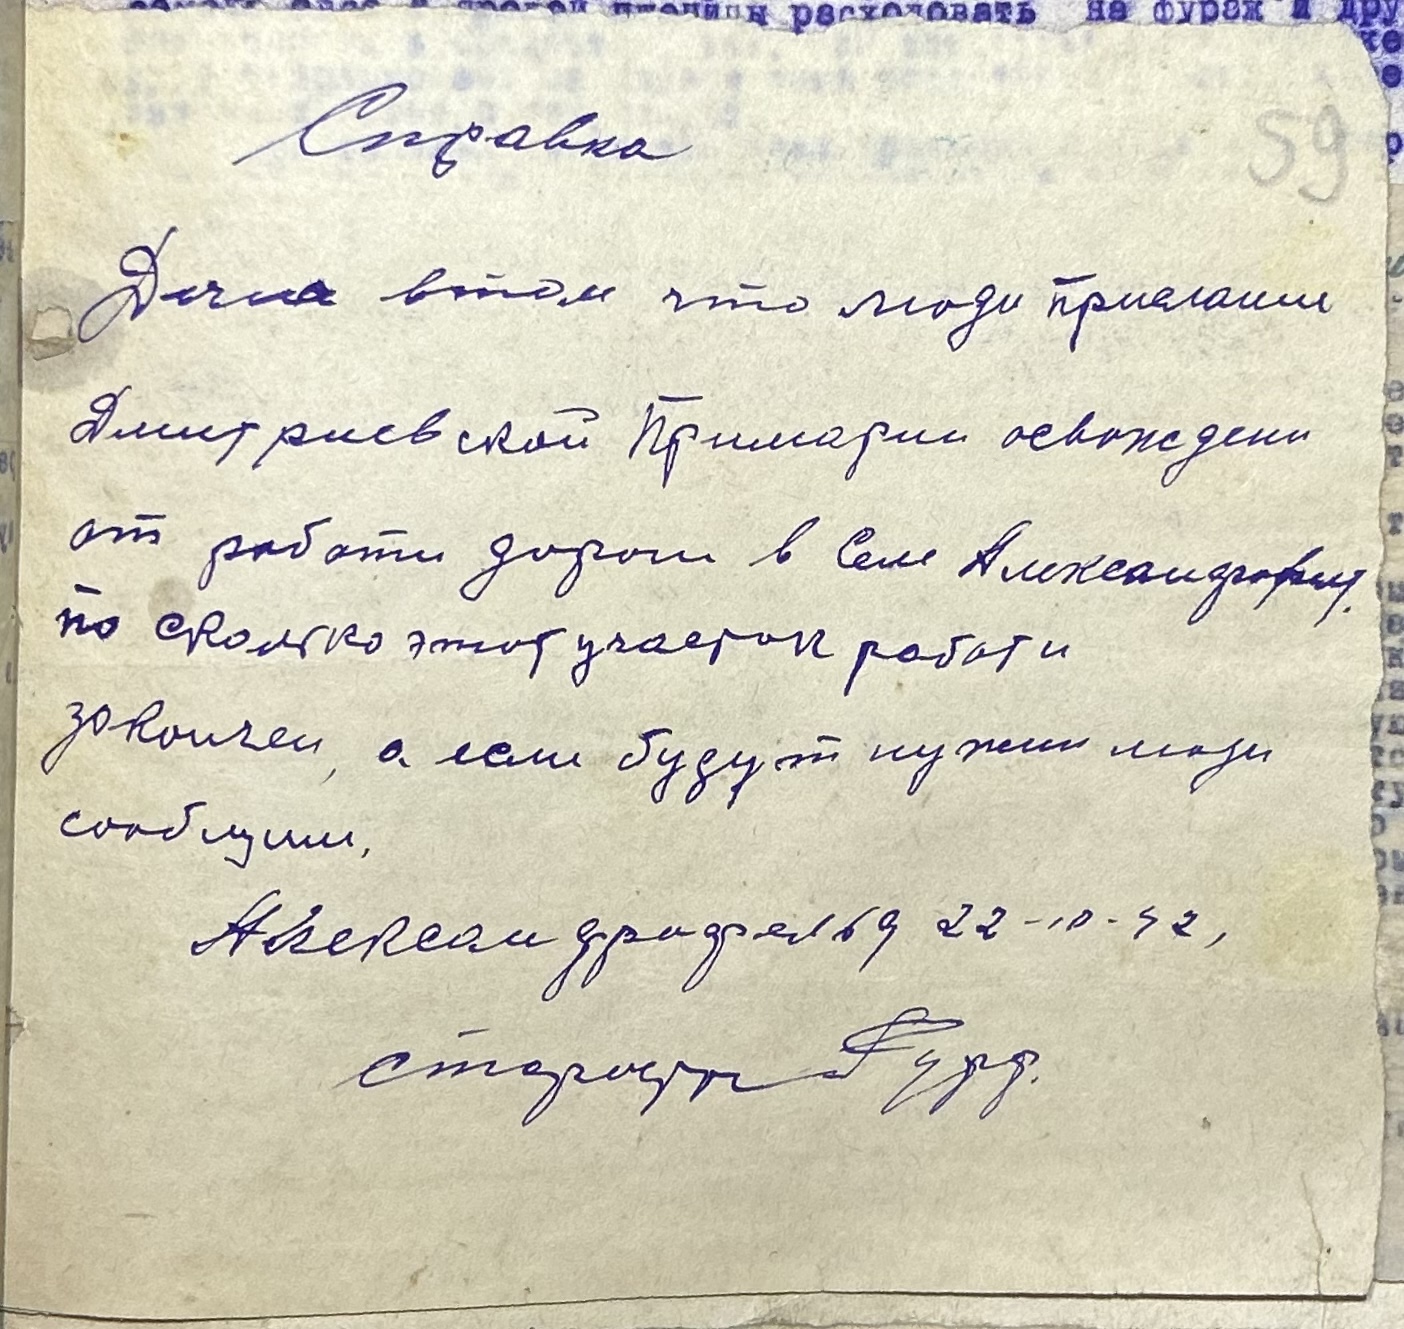 расходовать на фураж и
59
Справка
Дана втом что люди присланы
Дмитриевской Примарии освождени
от работи дороги в Селе Александрофельд.
по сколко этот участок работи
закончен, а если будут нужни люди
сообщим.
Александрофельд 22-10-42,
староста